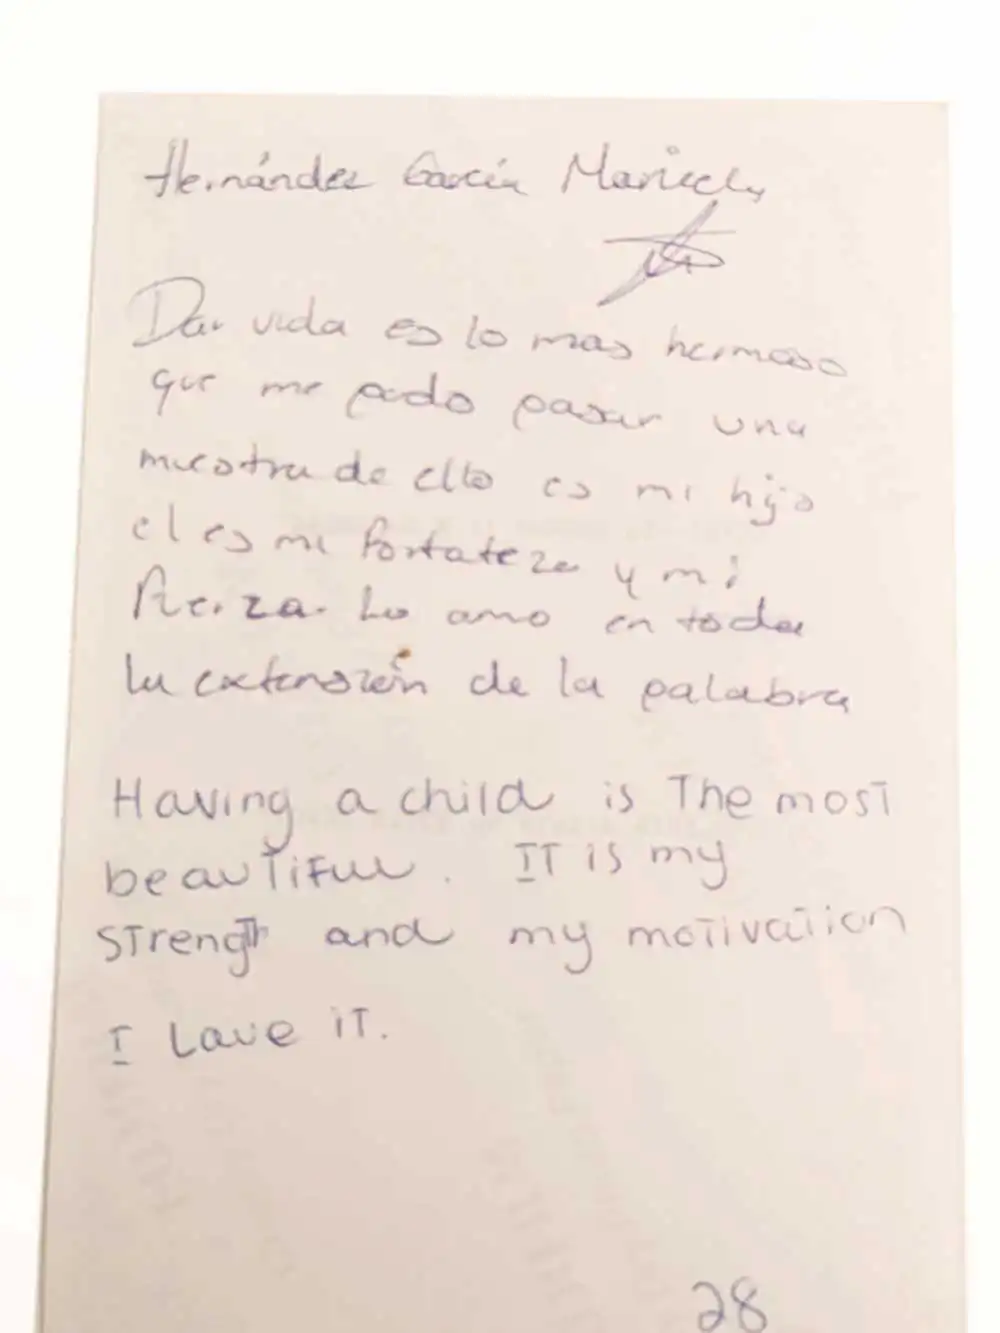 Hernández García Maricely
Dar vida es lo mas hermoso
que me pudo pasar una
muestra de ello es mi hijo
el es mi fortateza y mi
fuerza. Lo amo en toda
la extensión de la palabra
Having a child is The most
beautiful. IT is my
strength and my motivation
I Love iT.
28